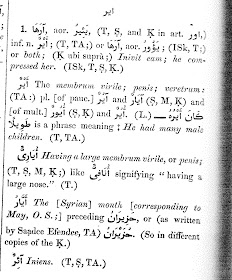 اير
1. آرَهَا, (T, Ṣ, and Ḳ in art. اور,) يَئِيرُ, aor.
inf. n. أَيْرٌ; (T, TA;) or آرَهَا, aor. يَؤُورُ; (ISk, T:)
or both; (Ḳ ubi suprà;) Inivit eam; he com-
pressed her. (ISk, T, Ṣ, Ḳ.)
أَيْرٌ The membrum virile; penis; veretrum:
(TA:) pl. [of pauc.] آيُرٌ and آيَارٌ (Ṣ, M, Ḳ) and
[of mult.] أُيُورٌ. (Ṣ, Ḳ) and أُيُرٌ. (L.) ــــ كَانَ أَيْرُهُ
طَوِيلًا is a phrase meaning ; He had many male
children. (T, TA.)
أُيَارِىٌّ Having a large membrum virile, or penis;
(T, Ṣ, M, Ḳ;) like أُنَافِىٌّ signifying “having a
large nose.” (T.)
أَيَّارُ The [Syrian] month [corresponding to
May, O. S.;] preceding حَزِيرَانُ, or (as written
by Saplee Efendee, TA) حُزَيْرَانُ. (So in different
copies of the Ḳ.)
آئِرٌ Iniens. (T, Ṣ, TA.)